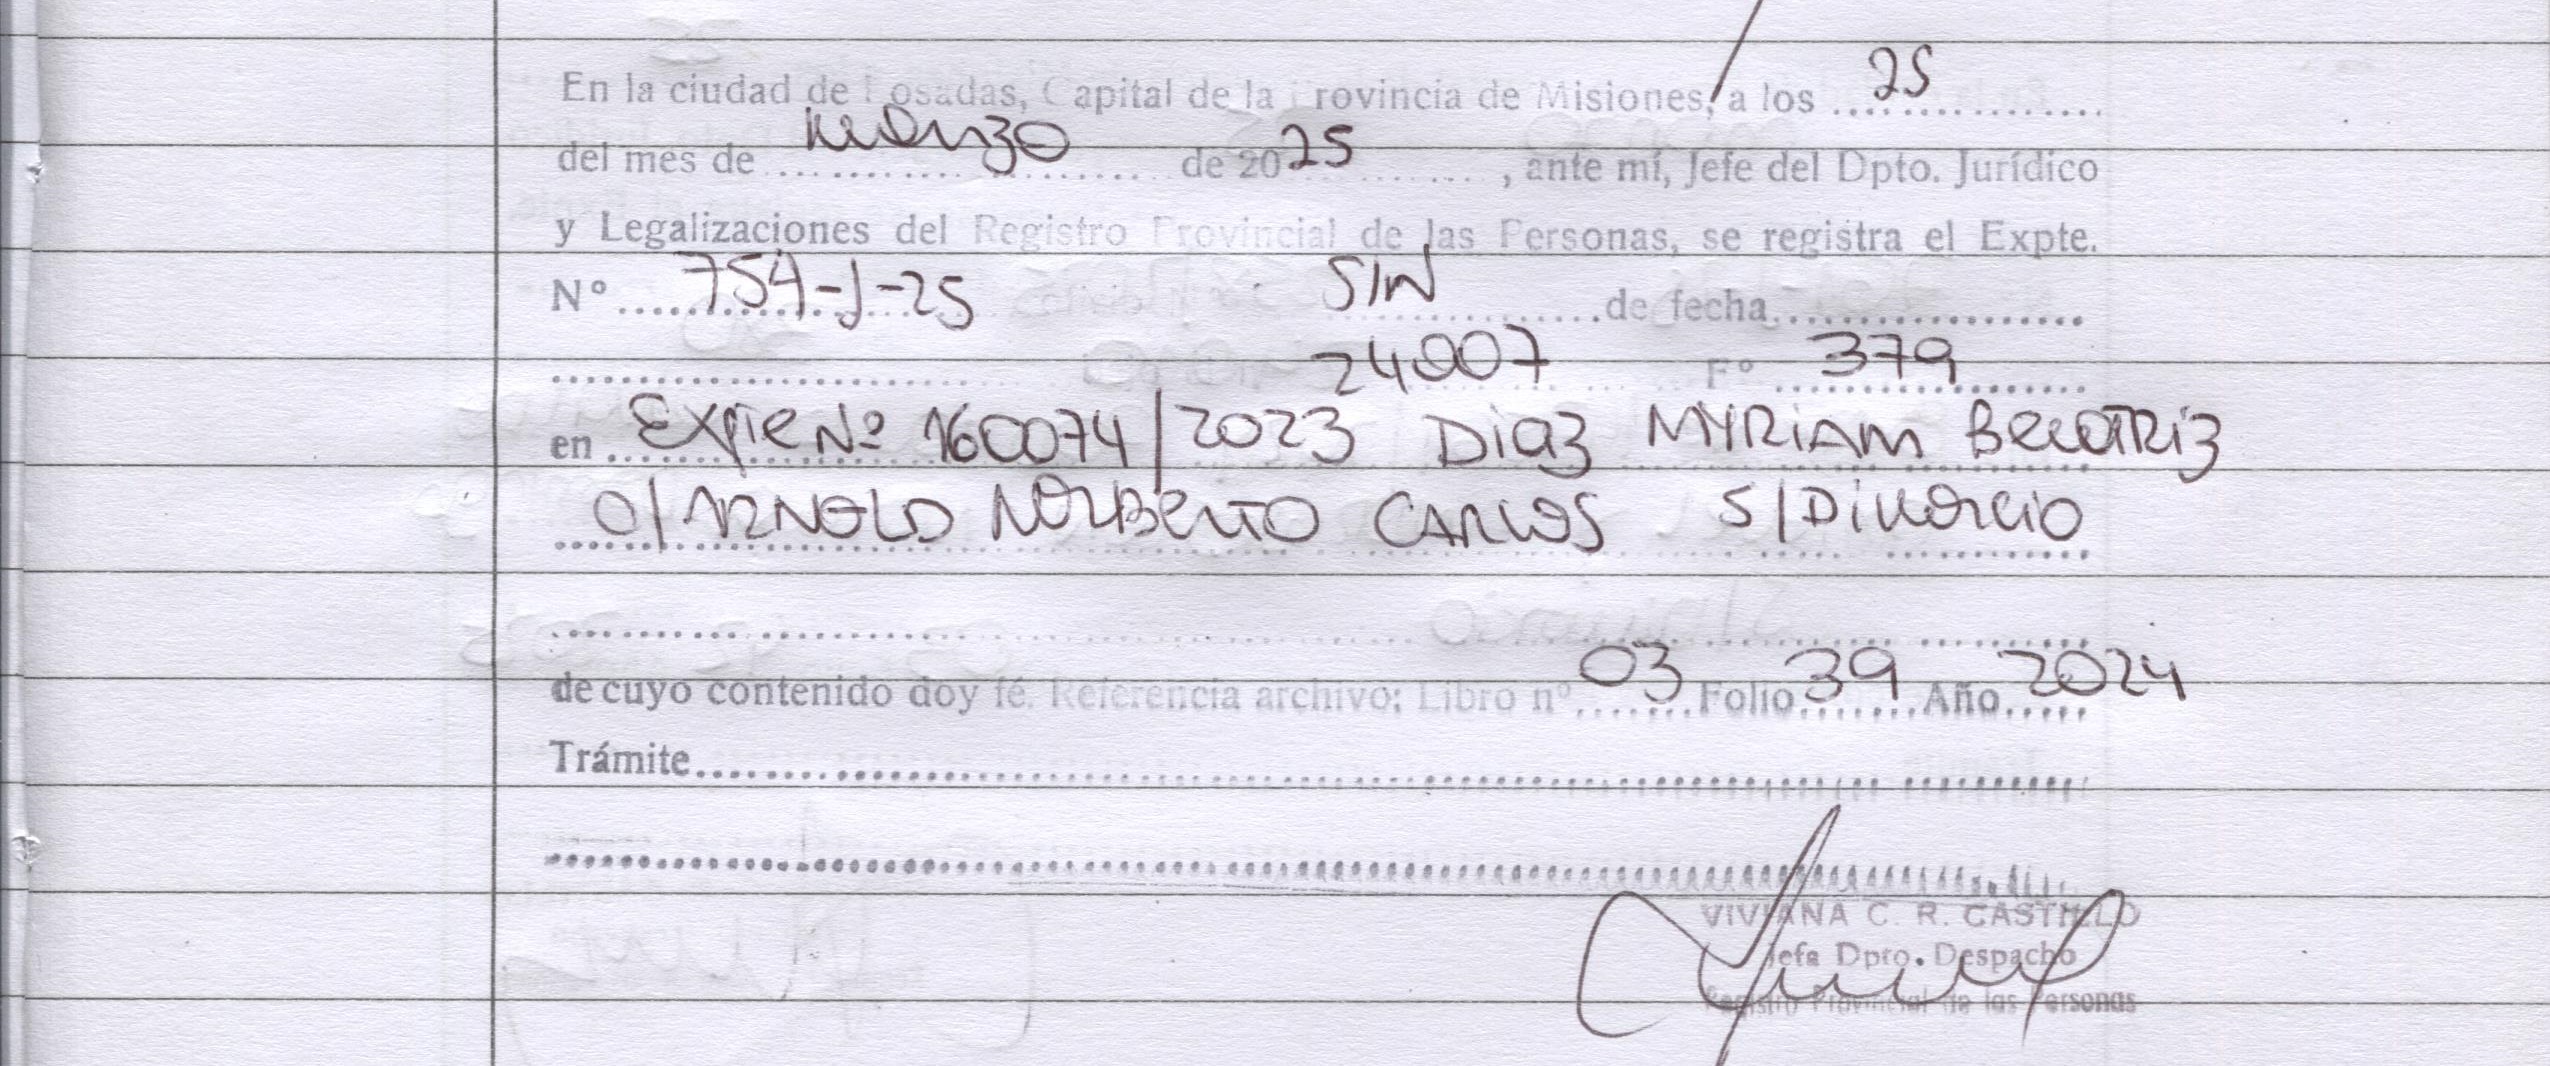 En la ciudad de Posadas, Capital de la Provincia de Misiones, a los 25
del mes de Marzo de 2025, ante mí, Jefe del Dpto. Jurídico
y Legalizaciones del Registro Provincial de las Personas, se registra el Expte.
Nº 754-J-25 S/N de fecha
24007 Fº 379
en Expte Nº 160074/2023 Diaz MYRiAM BeatRiz
c/ ARNOLD NORBerTO CARLOS S/Divorcio
de cuyo contenido doy fé. Referencia archivo; Libro nº 03 Folio 39 Año 2024
Trámite
VIVIANA C. R. CASTILLO
Jefa Dpto. Despacho
Registro Provincial de las Personas